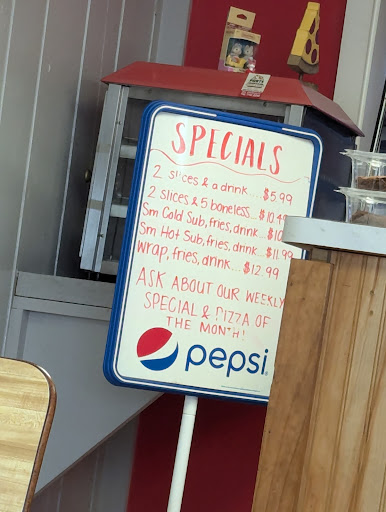 SPECIALS
2 slices & a drink...$5.99
2 slices & 5 boneless...$10.49
Sm Cold Sub, fries, drink...
Sm Hot Sub, fries, drink...$11.99
wrap, fries, drink...$12.99
ASK ABOUT OUR WEEKLY
SPECIAL & PIZZA OF
THE MONTH!
pepsi